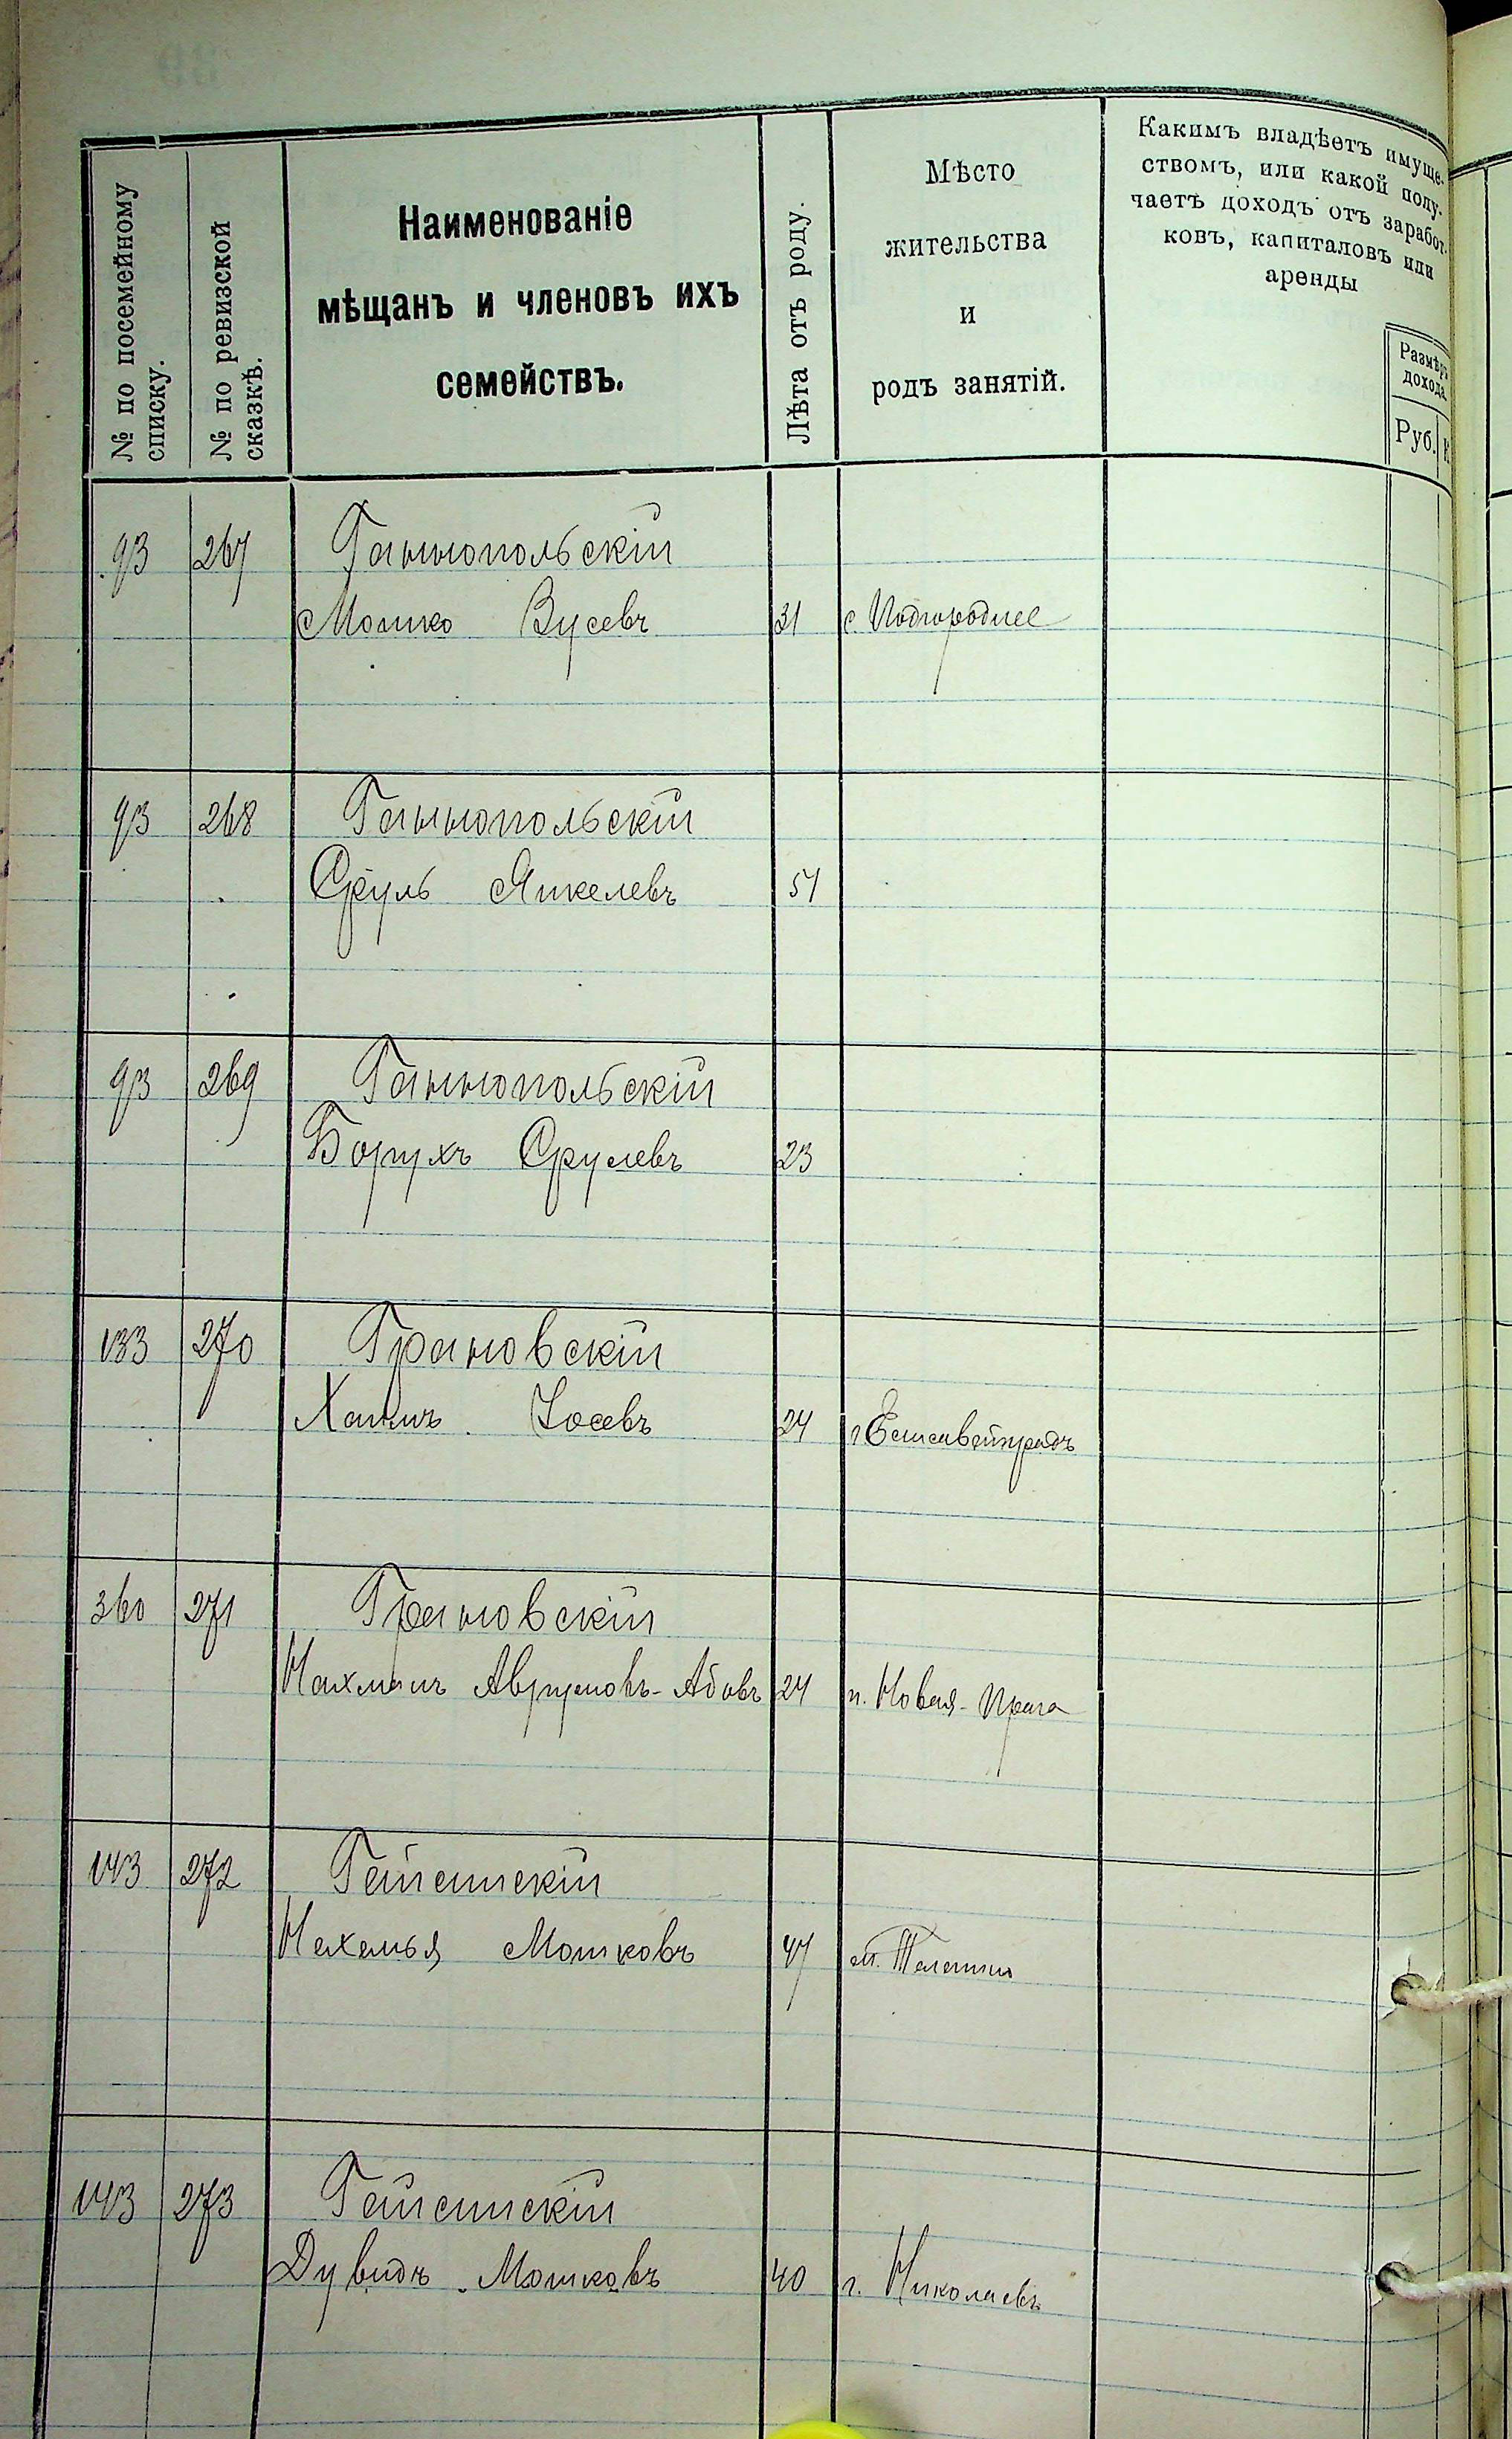 № по посемейному
списку.
№ по ревизской
сказкѣ.
Наименованіе
мѣщанъ и членовъ ихъ
семействъ.
Лѣта отъ роду.
Мѣсто
жительства
и
родъ занятій.
Какимъ владѣетъ имуще-
ствомъ, или какой полу-
чаетъ доходъ отъ заработ-
ковъ, капиталовъ или
аренды
Размѣръ
дохода.
Руб.
93 267 Ганнопольскій
Мошко Вусевъ 31 с. Подгороднее
93 268 Ганнопольскій
Сруль Янкелевъ 51
93 269 Ганнопольскій
Борухъ Срулевъ 23
133 270 Грановскій
Хаимъ Іосевъ 24 г. Елисаветградъ
360 271 Грановскій
Нахманъ Аврумовъ-Абовъ 24 п. Новая-Прага
143 272
Нехемья Мошковъ 47 м.
143 273
Дувидъ Мошковъ 40 г. Николаевъ